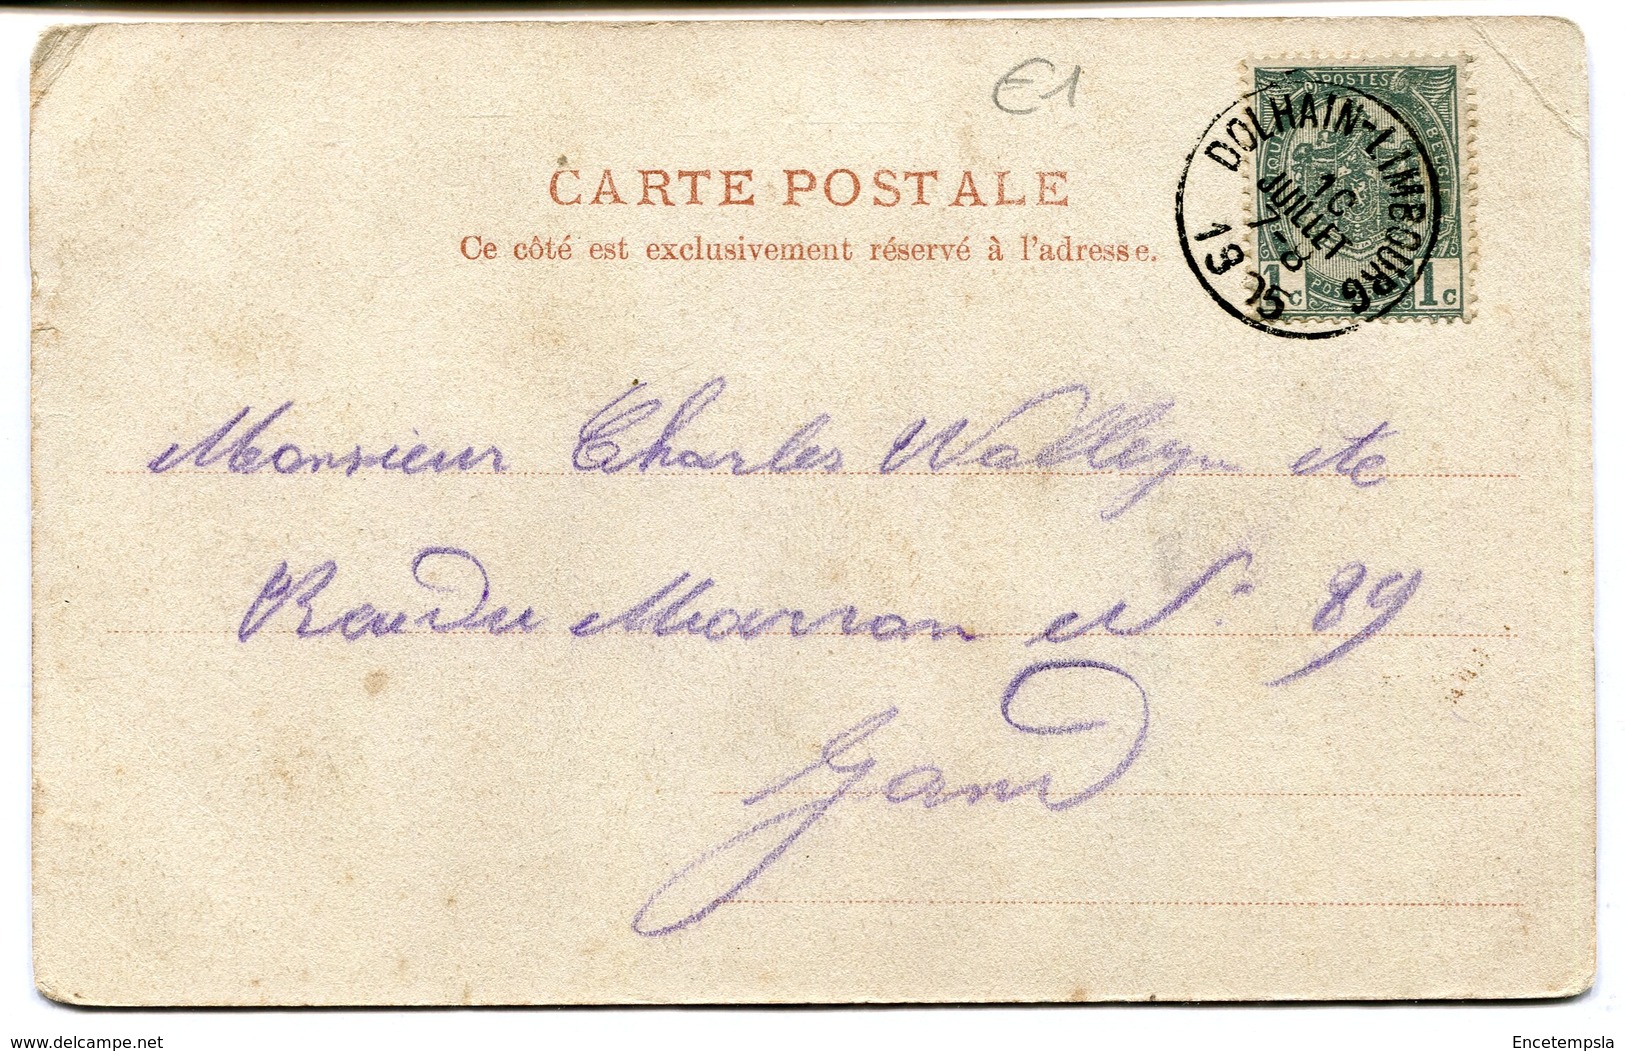 E1
CARTE POSTALE
Ce côté est exclusivement réservé à l'adresse.
POSTES
BELGIQUE
1c 1c
DOLHAIN-LIMBOURG
10
JUILLET
7-8
1905
Monsieur Charles Walleyn
Rue Du Marron N° 89
Gand
Encetempsla
delcampe.net